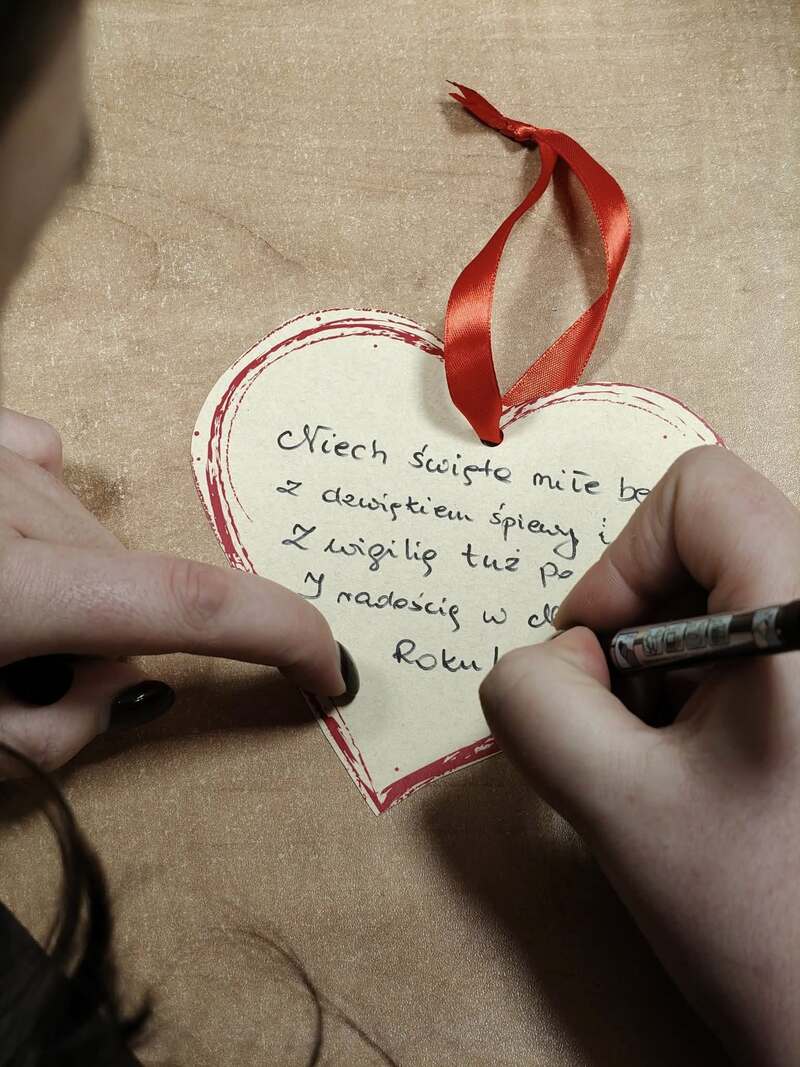 Niech święta miłe
z dzwiękiem śpiewy i
Z wigilią tuż
I radością w
Roku!